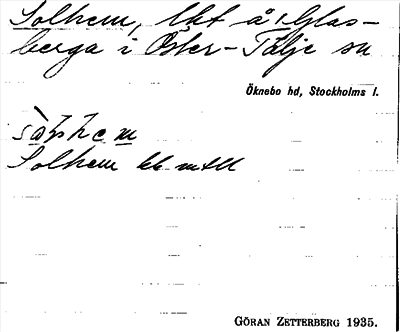 Solhem, lht å Glas-
berga i Öster-Tälje sn
Öknebo hd, Stockholms l.
Solhem
GÖRAN ZETTERBERG 1935.